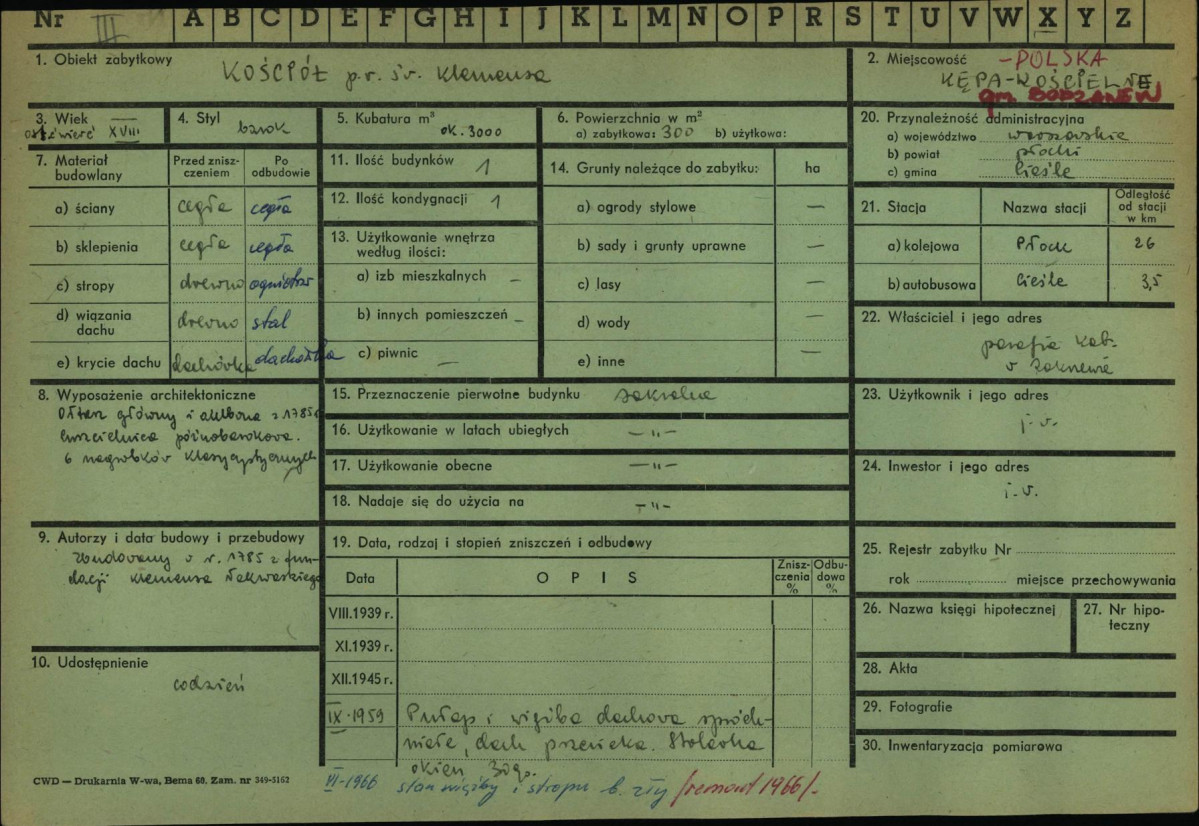 Nr III A B C D E F G H I J K L M N O P R S T U V W X Y Z
1. Obiekt zabytkowy KOŚCIÓŁ p.w. św. Klemensa
2. Miejscowość -POLSKA
KĘPA-KOŚCIELNE
gm. BODZANÓW
3. Wiek
XVIII
4. Styl barok
5. Kubatura m³
ok. 3000
6. Powierzchnia w m²
a) zabytkowa: 300 b) użytkowa:
20. Przynależność administracyjna
a) województwo warszawskie
b) powiat płocki
c) gmina Cieśle
7. Materiał budowlany
Przed zniszczeniem
Po odbudowie
a) ściany cegła cegła
b) sklepienia cegła cegła
c) stropy drewno ogniotrw
d) wiązania dachu drewno stal
e) krycie dachu dachówka dachówka
11. Ilość budynków 1
12. Ilość kondygnacji 1
13. Użytkowanie wnętrza
według ilości:
a) izb mieszkalnych –
b) innych pomieszczeń –
c) piwnic —
14. Grunty należące do zabytku: ha
a) ogrody stylowe —
b) sady i grunty uprawne —
c) lasy —
d) wody —
e) inne —
21. Stacja Nazwa stacji Odległość od stacji w km
a) kolejowa Płock 26
b) autobusowa Cieśle 3,5
22. Właściciel i jego adres
parafia kat.
w Zakrzewie
8. Wyposażenie architektoniczne
Ołtarz główny i ambona z 1785r
chrzcielnica późnobarokowa.
6 nagrobków klasycystycznych
15. Przeznaczenie pierwotne budynku sakralne
16. Użytkowanie w latach ubiegłych — „ —
17. Użytkowanie obecne — „ —
18. Nadaje się do użycia na — „ —
23. Użytkownik i jego adres
j.w.
24. Inwestor i jego adres
j.w.
9. Autorzy i data budowy i przebudowy
Zbudowany w r. 1785 z fun-
dacji Klemensa Nakwaskiego
10. Udostępnienie
codzień
19. Data, rodzaj i stopień zniszczeń i odbudowy
Data OPIS Zniszczenia % Odbudowa %
VIII.1939 r.
XI.1939 r.
XII.1945 r.
IX-1959 Pułap i więźba dachowa spróch-
niałe, dach przecieka. Stolarka
okien
VI-1966 stan więźby i stropu b. zły /remont 1966/-
25. Rejestr zabytku Nr
rok miejsce przechowywania
26. Nazwa księgi hipotecznej
27. Nr hipoteczny
28. Akta
29. Fotografie
30. Inwentaryzacja pomiarowa
CWD — Drukarnia W-wa, Bema 60. Zam. nr 349-5162